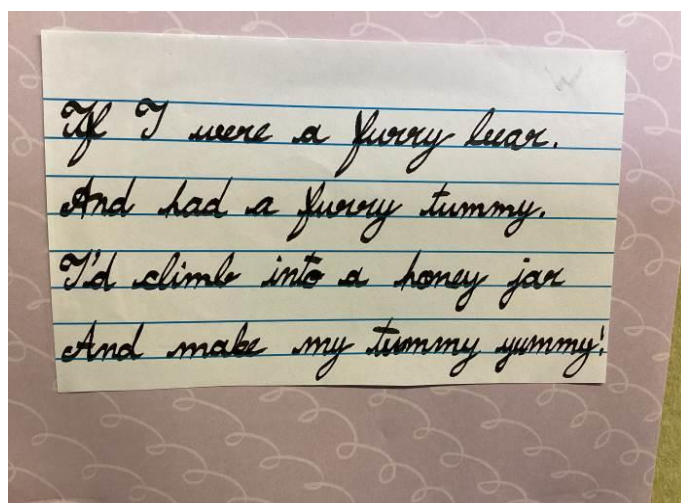 If I were a furry bear.
And had a furry tummy.
I'd climb into a honey jar
And make my tummy yummy!